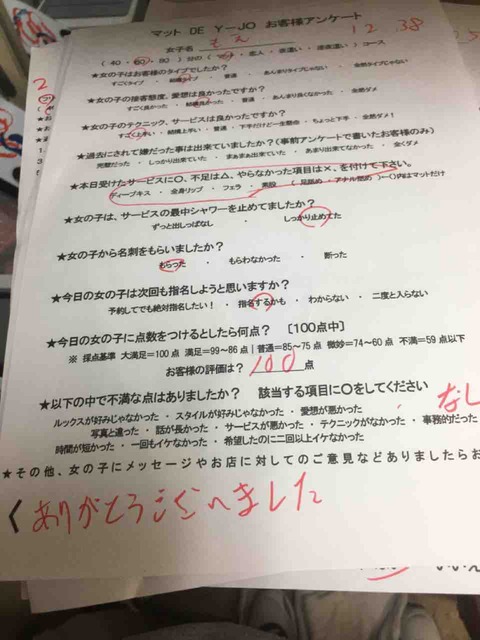 マット DE Y－JO お客様アンケート
女子名 もえ 12 38
(40・60・80)分の( ・恋人・夜這い・逆夜這い)コース
★女の子はお客様のタイプでしたか？
すごくタイプ ・ 結構タイプ ・ 普通 ・ あんまりタイプじゃない ・ 全然タイプじゃない
★女の子の接客態度、愛想は良かったですか？
すごく良かった ・ 結構良かった ・ 普通 ・ あんまり良くなかった ・ 全然ダメ
★女の子のテクニック、サービスは良かったですか？
すごく上手い ・ 結構上手い ・ 普通 ・ 下手だけど一生懸命 ・ ちょっと下手 ・ 全然ダメ！
★過去にされて嫌だった事は出来ていましたか？(事前アンケートで書いたお客様のみ)
完璧だった ・ しっかり出来ていた ・ まぁまぁ出来ていた ・ あまり出来てなかった ・ 全くダメ
★本日受けたサービスに○、不足は△、やらなかった項目は×、を付けて下さい。
ディープキス ・ 全身リップ ・ フェラ ・ 素股 ( 足舐め ・ アナル舐め )←()内はマットだけ
★女の子は、サービスの最中シャワーを止めてましたか？
ずっと出しっぱなし ・ しっかり止めてた
★女の子から名刺をもらいましたか？
もらった ・ もらわなかった ・ 断った
★今日の女の子は次回も指名しようと思いますか？
予約してでも絶対指名したい！ ・ 指名するかも ・ わからない ・ 二度と入らない
★今日の女の子に点数をつけるとしたら何点？ 〔100点中〕
※ 採点基準 大満足=100 点 満足=99～86 点 | 普通=85～75 点 微妙=74～60 点 不満=59 点以下
お客様の評価は？ 100 点
★以下の中で不満な点はありましたか？ 該当する項目に○をしてください
なし
ルックスが好みじゃなかった ・ スタイルが好みじゃなかった ・ 愛想が悪かった
写真と違った ・ 話が長かった ・ サービスが悪かった ・ テクニックがなかった ・ 事務的だった
時間が短かった ・ 一回もイケなかった ・ 希望したのに二回以上イケなかった
★その他、女の子にメッセージやお店に対してのご意見などありましたらお
ありがとうございました